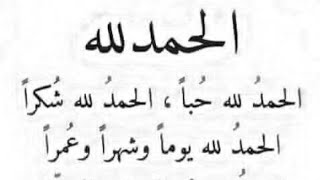 الحمد لله
الحمدُ لله حُباً ، الحمدُ لله شُكراً
الحمدُ لله يوماً وشهراً وعُمراً